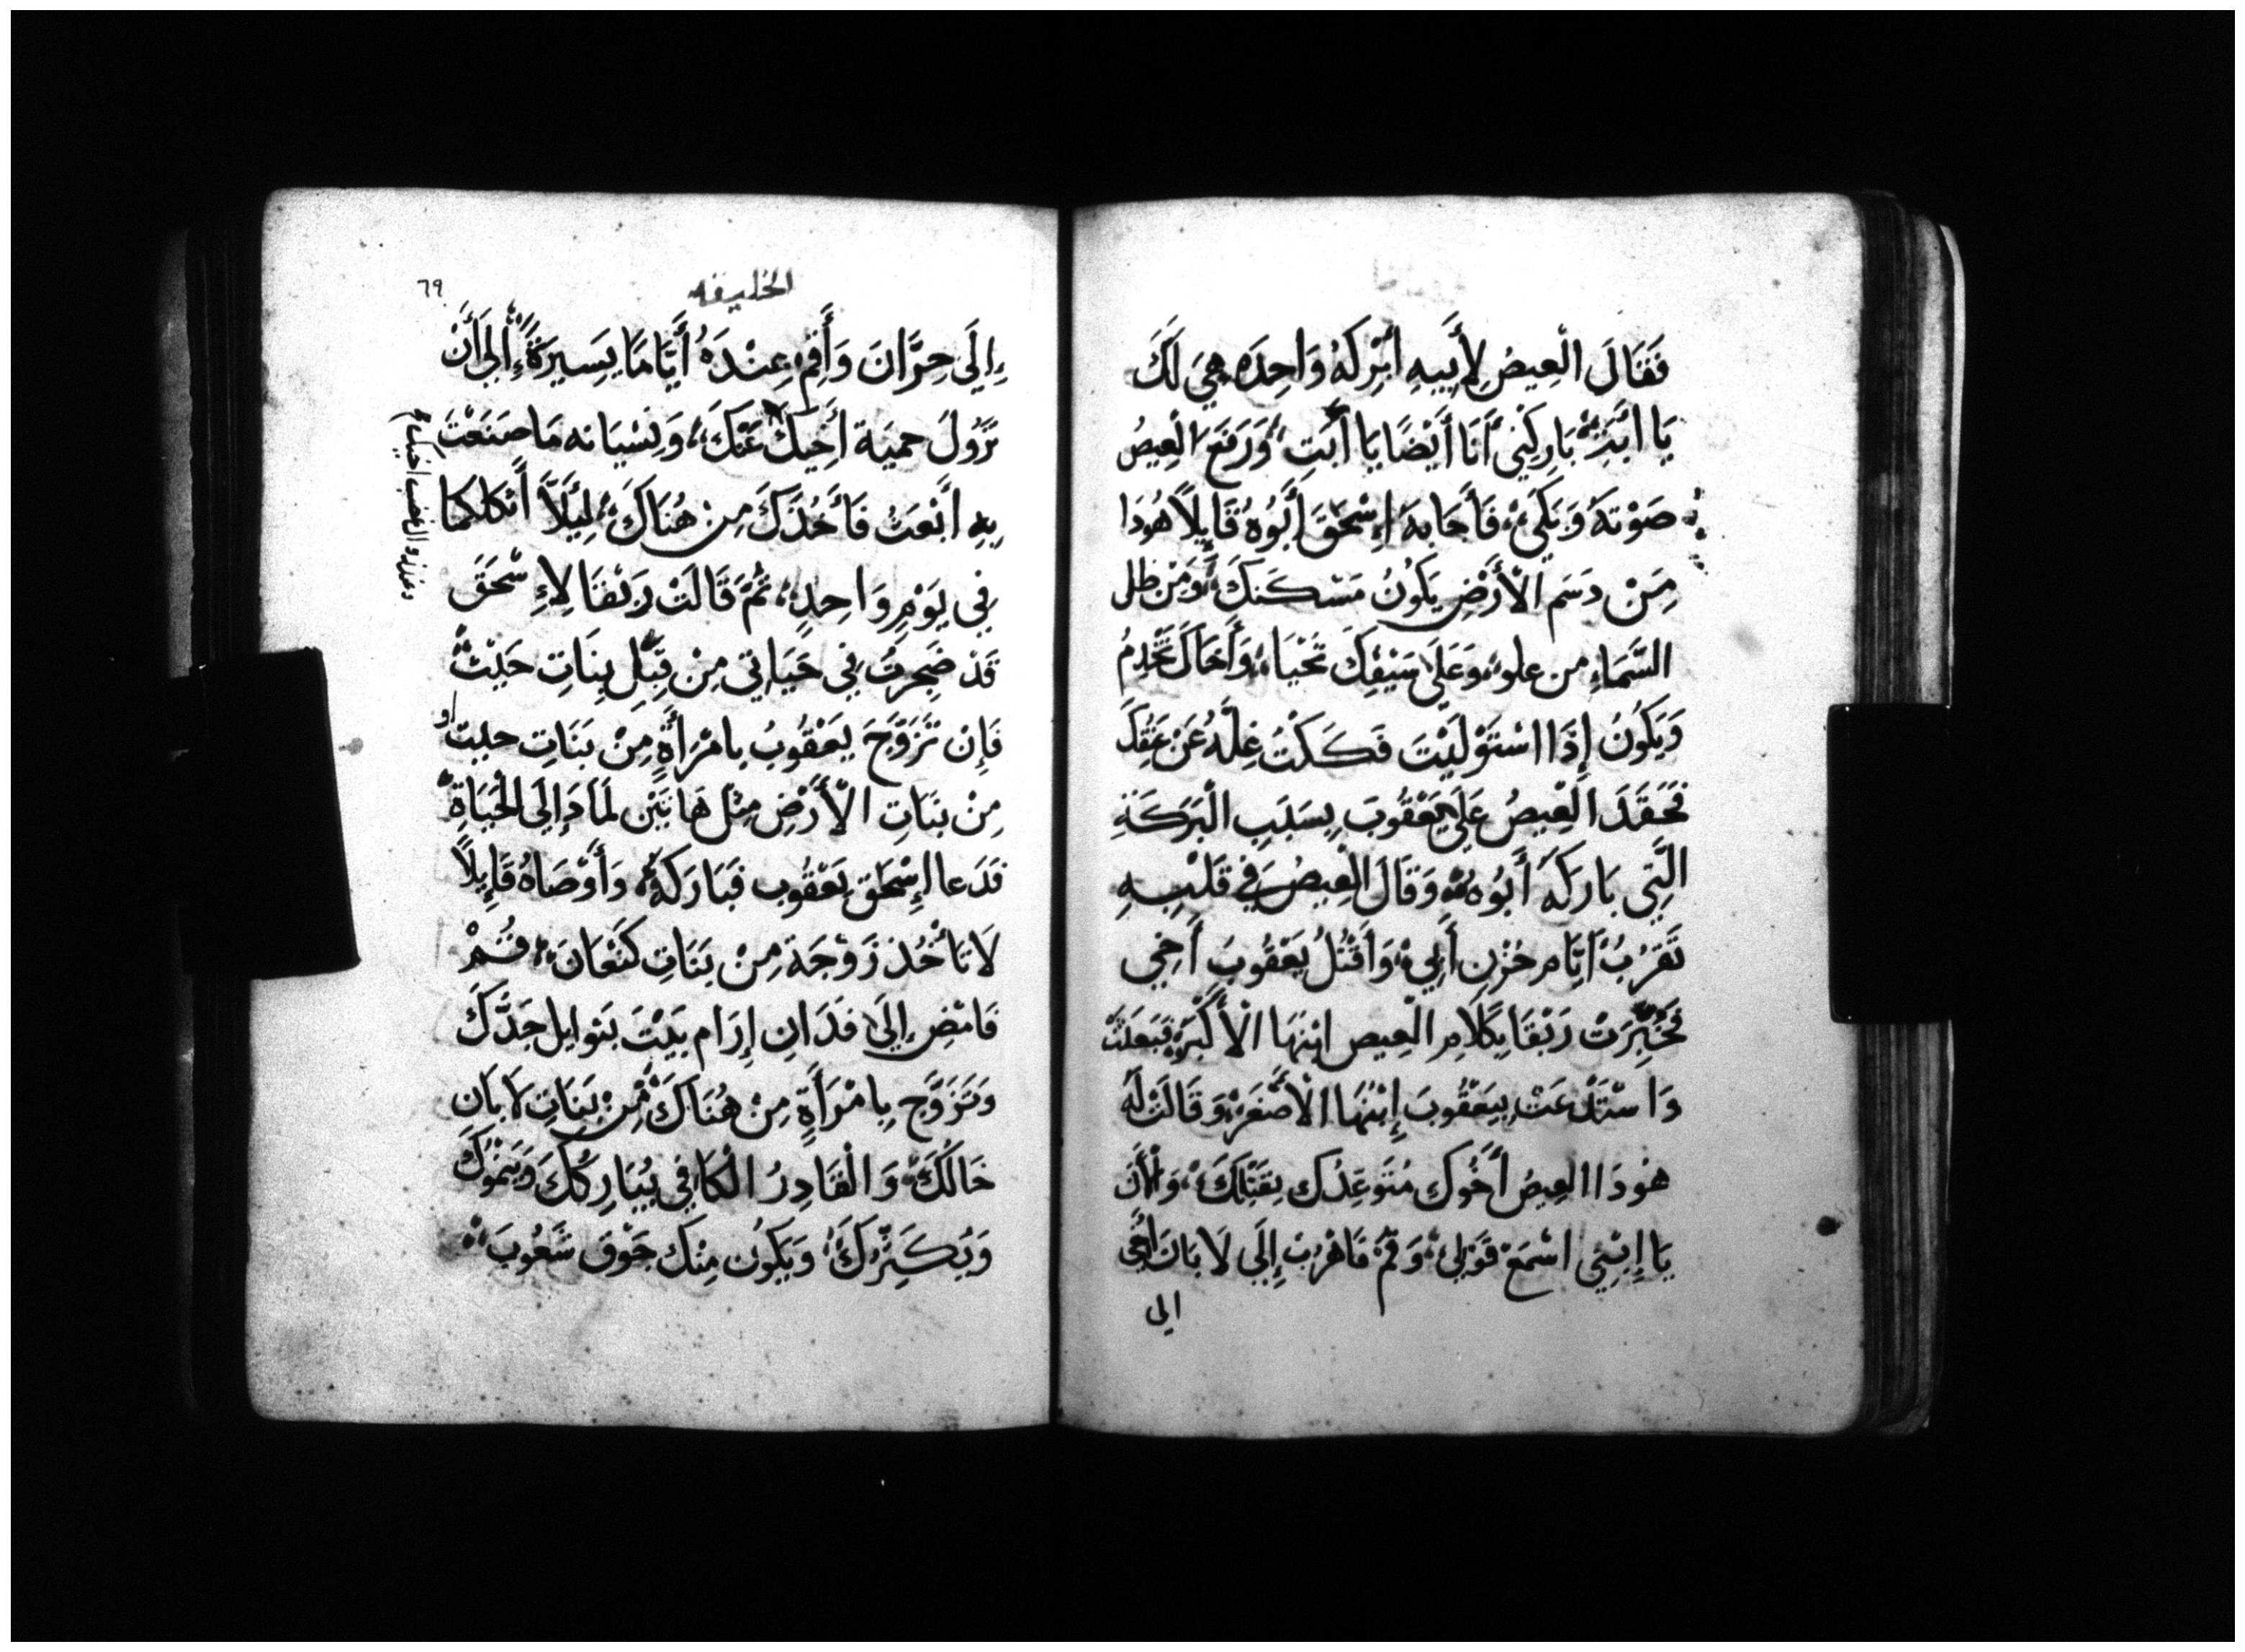 فَقَالَ الْعِيصُ لِأَبِيهِ ابَرَكَهُ وَاحِدَه هِيَ لَكَ
يَا ابَتِ بَارِكْنِي أَنَا أَيْضًا يَا أَبَتِ وَرَفَعَ الْعِيصُ
صَوْتَهُ وَبَكَى فَأَجَابَهُ إِسْحَقَ أَبُوهُ قَايِلًا هُودَا
مِنْ دَسَم الْأَرْضِ يَكُونُ مَسْكَنَكَ وَمِنْ طل
السَّمَاءِ من علو وَعَلَى سَيْفِكَ تَحْيَا وَأَخَاكَ تَخْدِمُ
وَيَكُونُ إِذَا اسْتَوْلَيْتَ فَكَكْتَ غِلَّهُ عَنْ عُنُقِكَ
فَحَقَدَ الْعِيصُ عَلَى يَعْقُوبَ بِسَبَبِ الْبَرَكَةِ
الَّتِي بَارَكَهُ أَبُوهُ وَقَالَ الْعِيصُ فِي قَلْبِهِ
تَقْرُبُ أَيَّام حُزْنِ أَبِي وَأَقْتُلُ يَعْقُوبَ أَخِي
فَخُبِّرَتْ رَبْقَا بِكَلَامِ الْعِيص ابْنِهَا الْأَكْبَرِ فَبَعَثَتْ
وَاسْتَدْعَتْ بِيَعْقُوبَ إِبْنُهَا الْأَصْغَرَ وَقَالَتْ لَهُ
هُودَا العِيصُ أَخُوكَ مُتَوَعِدُك بِقَتْلِكَ وَالْأَنَ
يَا إِبْنِي اسْمَعْ قَوْلِي وَقُمْ فَاهْرُبْ إِلَى لَابَانَ أَخِي
الى
الخليفه
٦٩
إِلَى حِرَّانَ وَأَقِمْ عِنْدَهُ أَيَّامًا يَسِيرَةً إِلَى أَنْ
تَزُولَ حميَة أَخِيكَ عَنْكَ وَنِسْيَانه مَا صَنَعْتَ
بِهِ أَبْعَثُ فَأَخُذَكَ مِنْ هُنَاكَ لِيَلَّا أَثْكلكُمَا
فِي يَوْمٍ وَاحِدٍ ثُمَّ قَالَتْ رَبْقَا لِإِسْحَقَ
قَدْ ضَجِرْتُ فِي حَيَاتِي مِنْ قِبَلِ بَنَاتِ حَيْثَ
فَإِنْ تَزَوَّجَ يَعْقُوبُ بامْرَأَةٍ مِنْ بَنَاتِ حيث او
مِنْ بَنَاتِ الْأَرْضِ مِثْل هَاتَيْنِ لَمَاذَا إِلَى الْحَيَاةِ
فَدَعا إِسْحَق يَعْقُوب فَبَارَكَهُ وَأَوْصَاهُ قَايِلًا
لَا تَأْخُذ زَوْجَة مِنْ بَنَاتِ كَنْعَانَ فَقُمْ
فَامْضِ إِلَى فَدَانِ إِرَام بَيْتَ بَتوايل جَدَّكَ
وَتَزَوَّج بِامْرَأَةٍ مِنْ هُنَاكَ مِنْ بَنَاتِ لَابَانِ
خَالُكَ وَالْقَادِرُ الْكَافِي يُبَارِكُكَ وَيَنْمُوكَ
وَيُكَثِرُكَ وَيَكُون مِنْك جَوْق شُعُوبَ